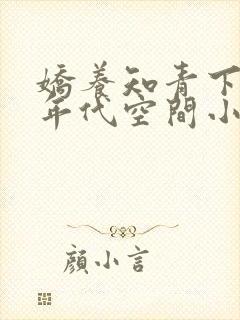 嬌養知青下
年代空間小
顏小言